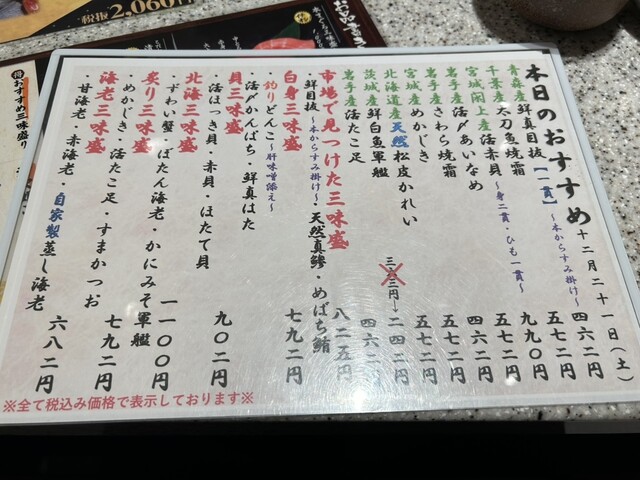 税抜2,060円
お品書き
得おすすめ三昧盛り
本日のおすすめ 十二月二十一日(土)
青森産 鮮真目抜【一貫】～本からすみ掛け～ 四六二円
千葉産 太刀魚焼霜 五七二円
宮城閖上産 活赤貝 ～身二貫・ひも一貫～ 九九〇円
岩手産 活〆あいなめ 五七二円
岩手産 さわら焼霜 四六二円
宮城産 めかじき 五七二円
北海道産 天然松皮かれい 五七二円
茨城産 鮮白魚軍艦 円→二四二円
岩手産 活たこ足 四六二円
市場で見つけた三味盛 八二五円
・鮮目抜～本からすみ掛け～・天然真鯵・めばち鮪
白身三味盛 七九二円
・釣りどんこ～肝味噌添え～
・活〆かんぱち・鮮真はた
貝三味盛 九〇二円
・活ほっき貝・赤貝・ほたて貝
北海三味盛 一一〇〇円
・ずわい蟹・ぼたん海老・かにみそ軍艦
炙り三味盛 七九二円
・めかじき・活たこ足・すまかつお
海老三味盛 六八二円
・甘海老・赤海老・自家製蒸し海老
※全て税込み価格で表示しております※